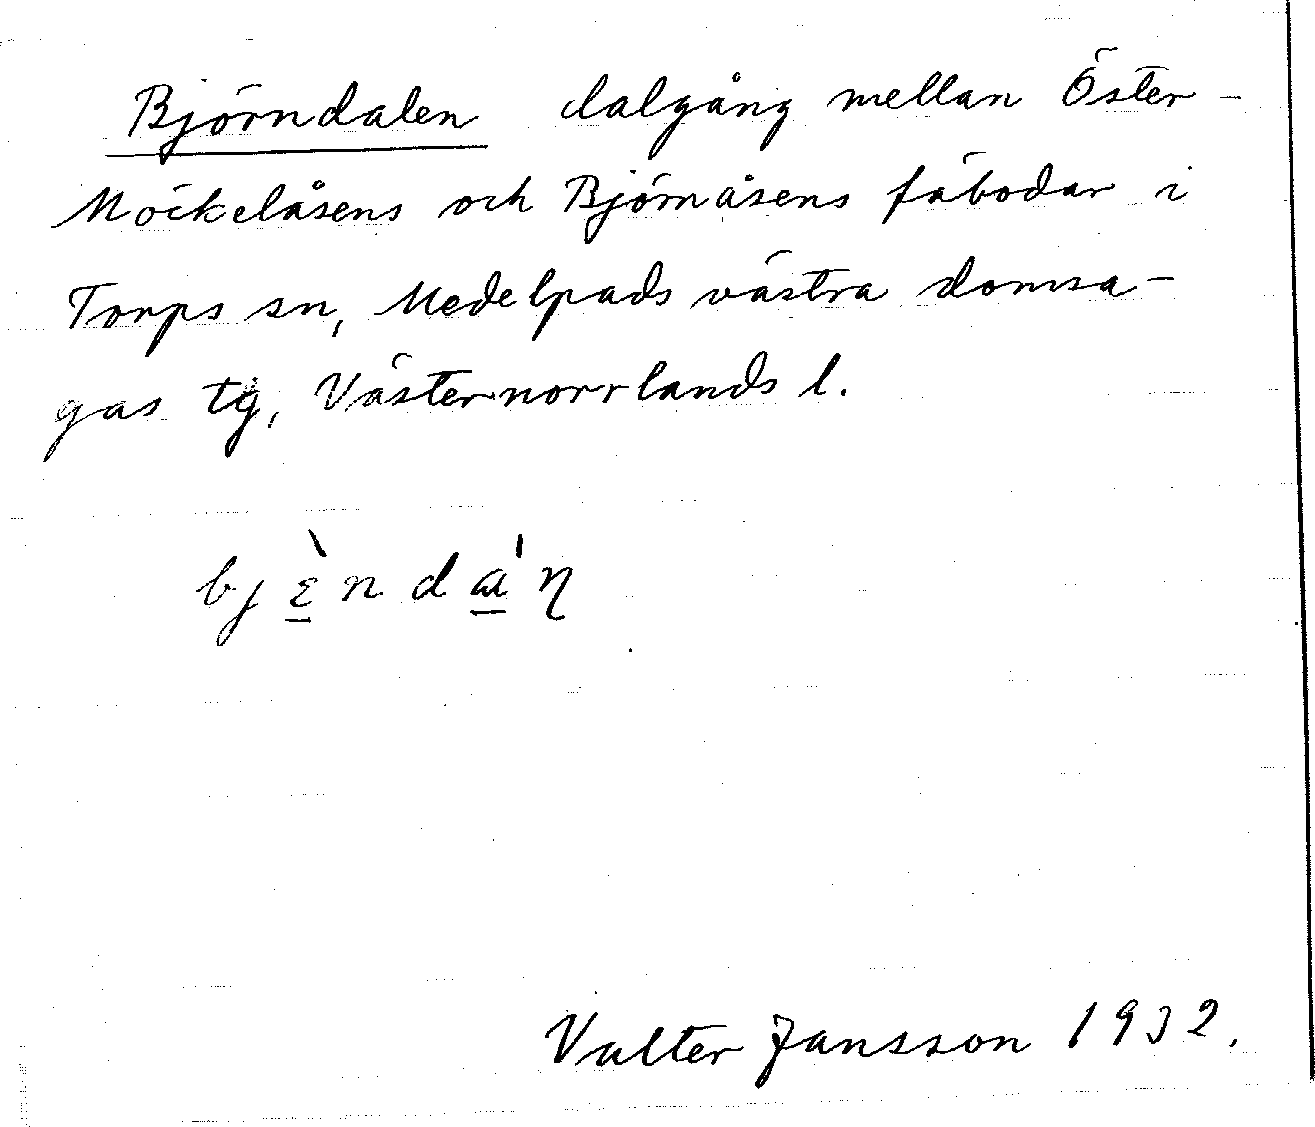 Björndalen dalgång mellan Öster-
Möckelåsens och Björnåsens fäbodar i
Torps sn, Medelpads västra domsa-
gas tg, Västernorrlands l.
bjɛ̠̀ndá̠ŋ
Valter Jansson 1932.